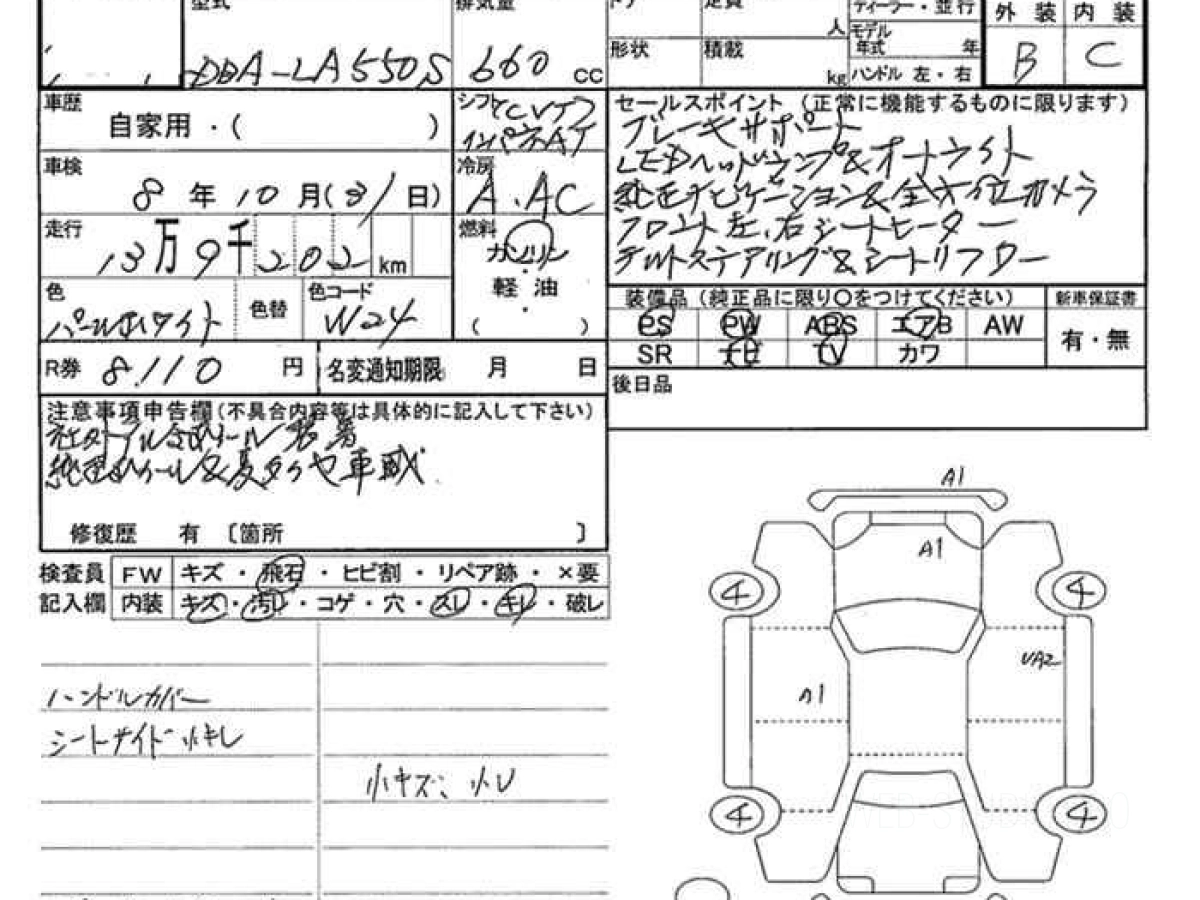 型式
排気量
ドア
定員
人
ディーラー・並行
外装 内装
DBA-LA550S
660 cc
形状
積載
kg
モデル年式 年
ハンドル 左・右
B C
車歴
自家用・( )
シフト CVT
インパネAT
セールスポイント (正常に機能するものに限ります)
ブレーキサポート
LEDヘッドランプ&オートライト
純正ナビゲーション&全方位カメラ
フロント左、右シートヒーター
チルトステアリング&シートリフター
車検
8年10月(31日)
冷房
A.AC
走行
13万9千202km
燃料
ガソリン
軽油
( )
色
パールホワイト
色替
色コード
W24
装備品 (純正品に限り○をつけてください)
新車保証書
PS PW ABS エアB AW
有・無
SR ナビ TV カワ
R券 8.110 円
名変通知期限 月 日
後日品
注意事項申告欄(不具合内容等は具体的に記入して下さい)
社外アルミホイール装着
純正ホイール&夏タイヤ車載
修復歴 有 〔箇所 〕
検査員 FW キズ・飛石・ヒビ割・リペア跡・×要
記入欄 内装 キズ・汚レ・コゲ・穴・スレ・キレ・破レ
ハンドルカバー
シートサイド小キレ
小キズ、小レ
A1
A1
4 4
UA2
A1
4 4